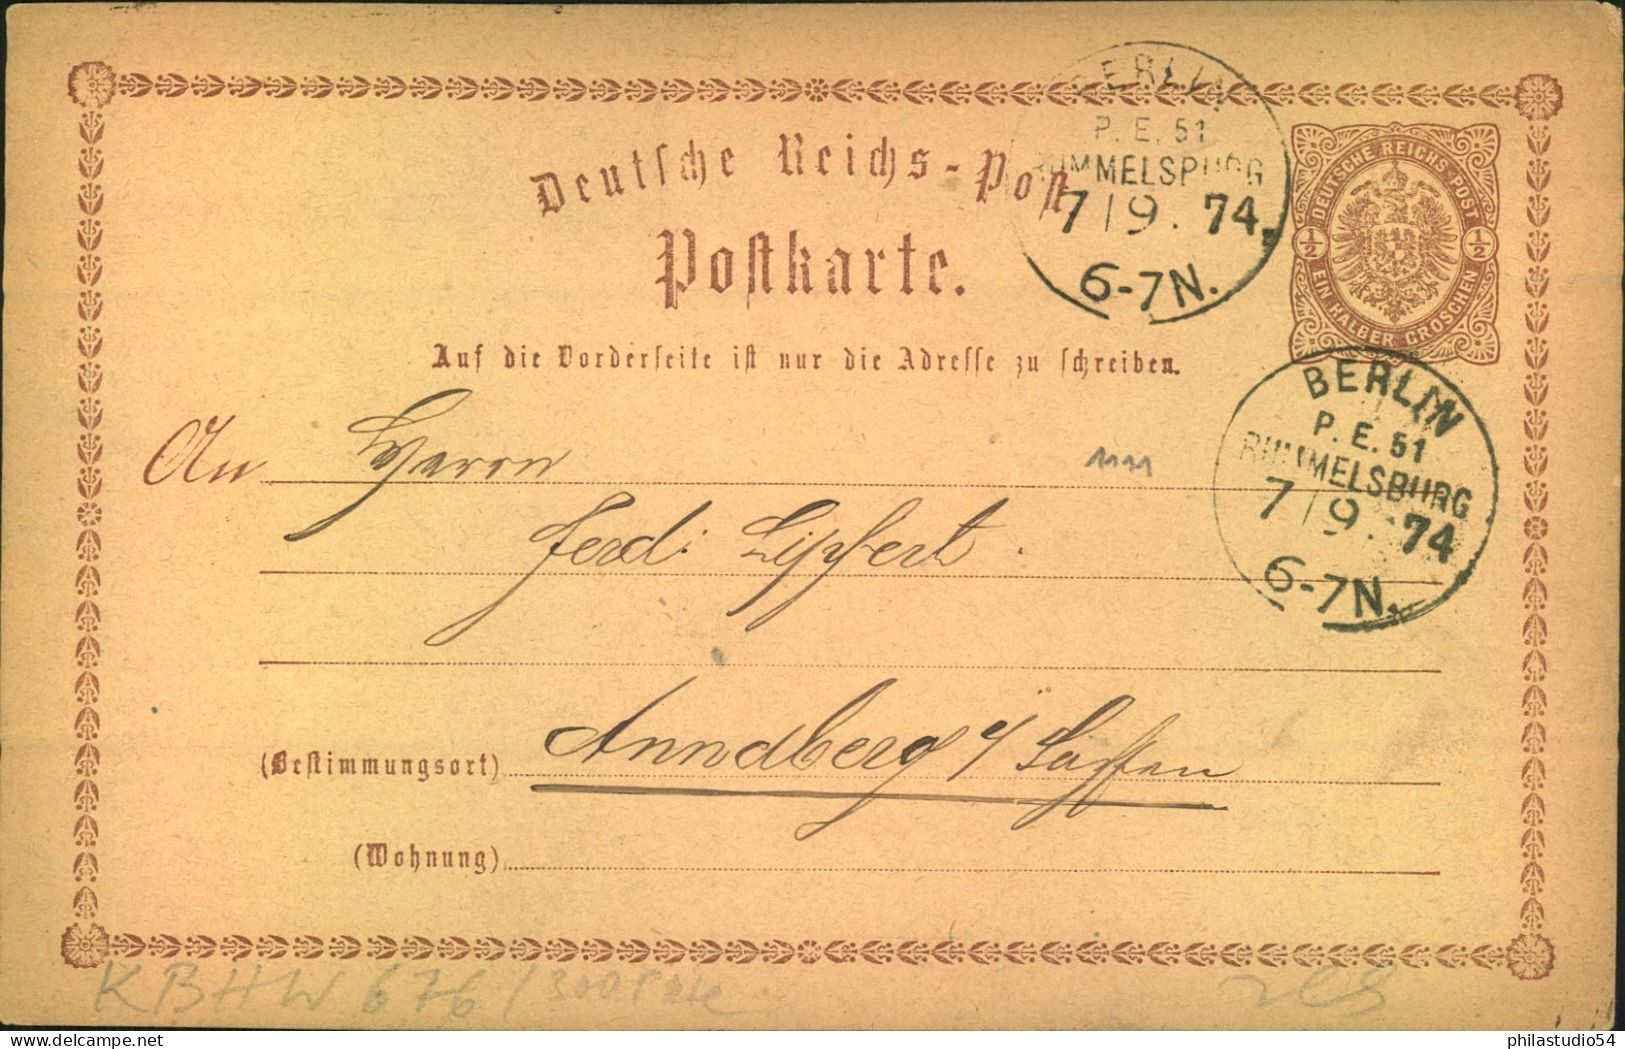 BERLIN
P. E. 51
RUMMELSBURG
7/9. 74.
6-7N.
Deutsche Reichs-Post
Postkarte.
DEUTSCHE REICHS-POST
1/2 1/2
EIN HALBER GROSCHEN
Auf die Vorderseite ist nur die Adresse zu schreiben.
BERLIN
P. E. 51
RUMMELSBURG
7/9. 74
6-7N.
An Herrn
1111
Ferd: Lipfert.
(Bestimmungsort) Annaberg i/ Sachsen
(Wohnung)
KBHW 676 /
philastudio54